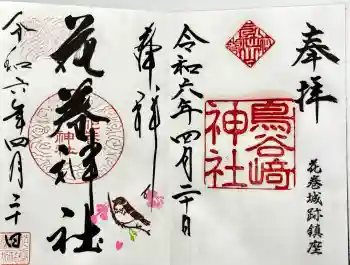 奉拝
花巻城跡鎮座
鳥谷崎
神社
令和六年四月二十日
奉拝
花巻神社
令和六年四月二十日